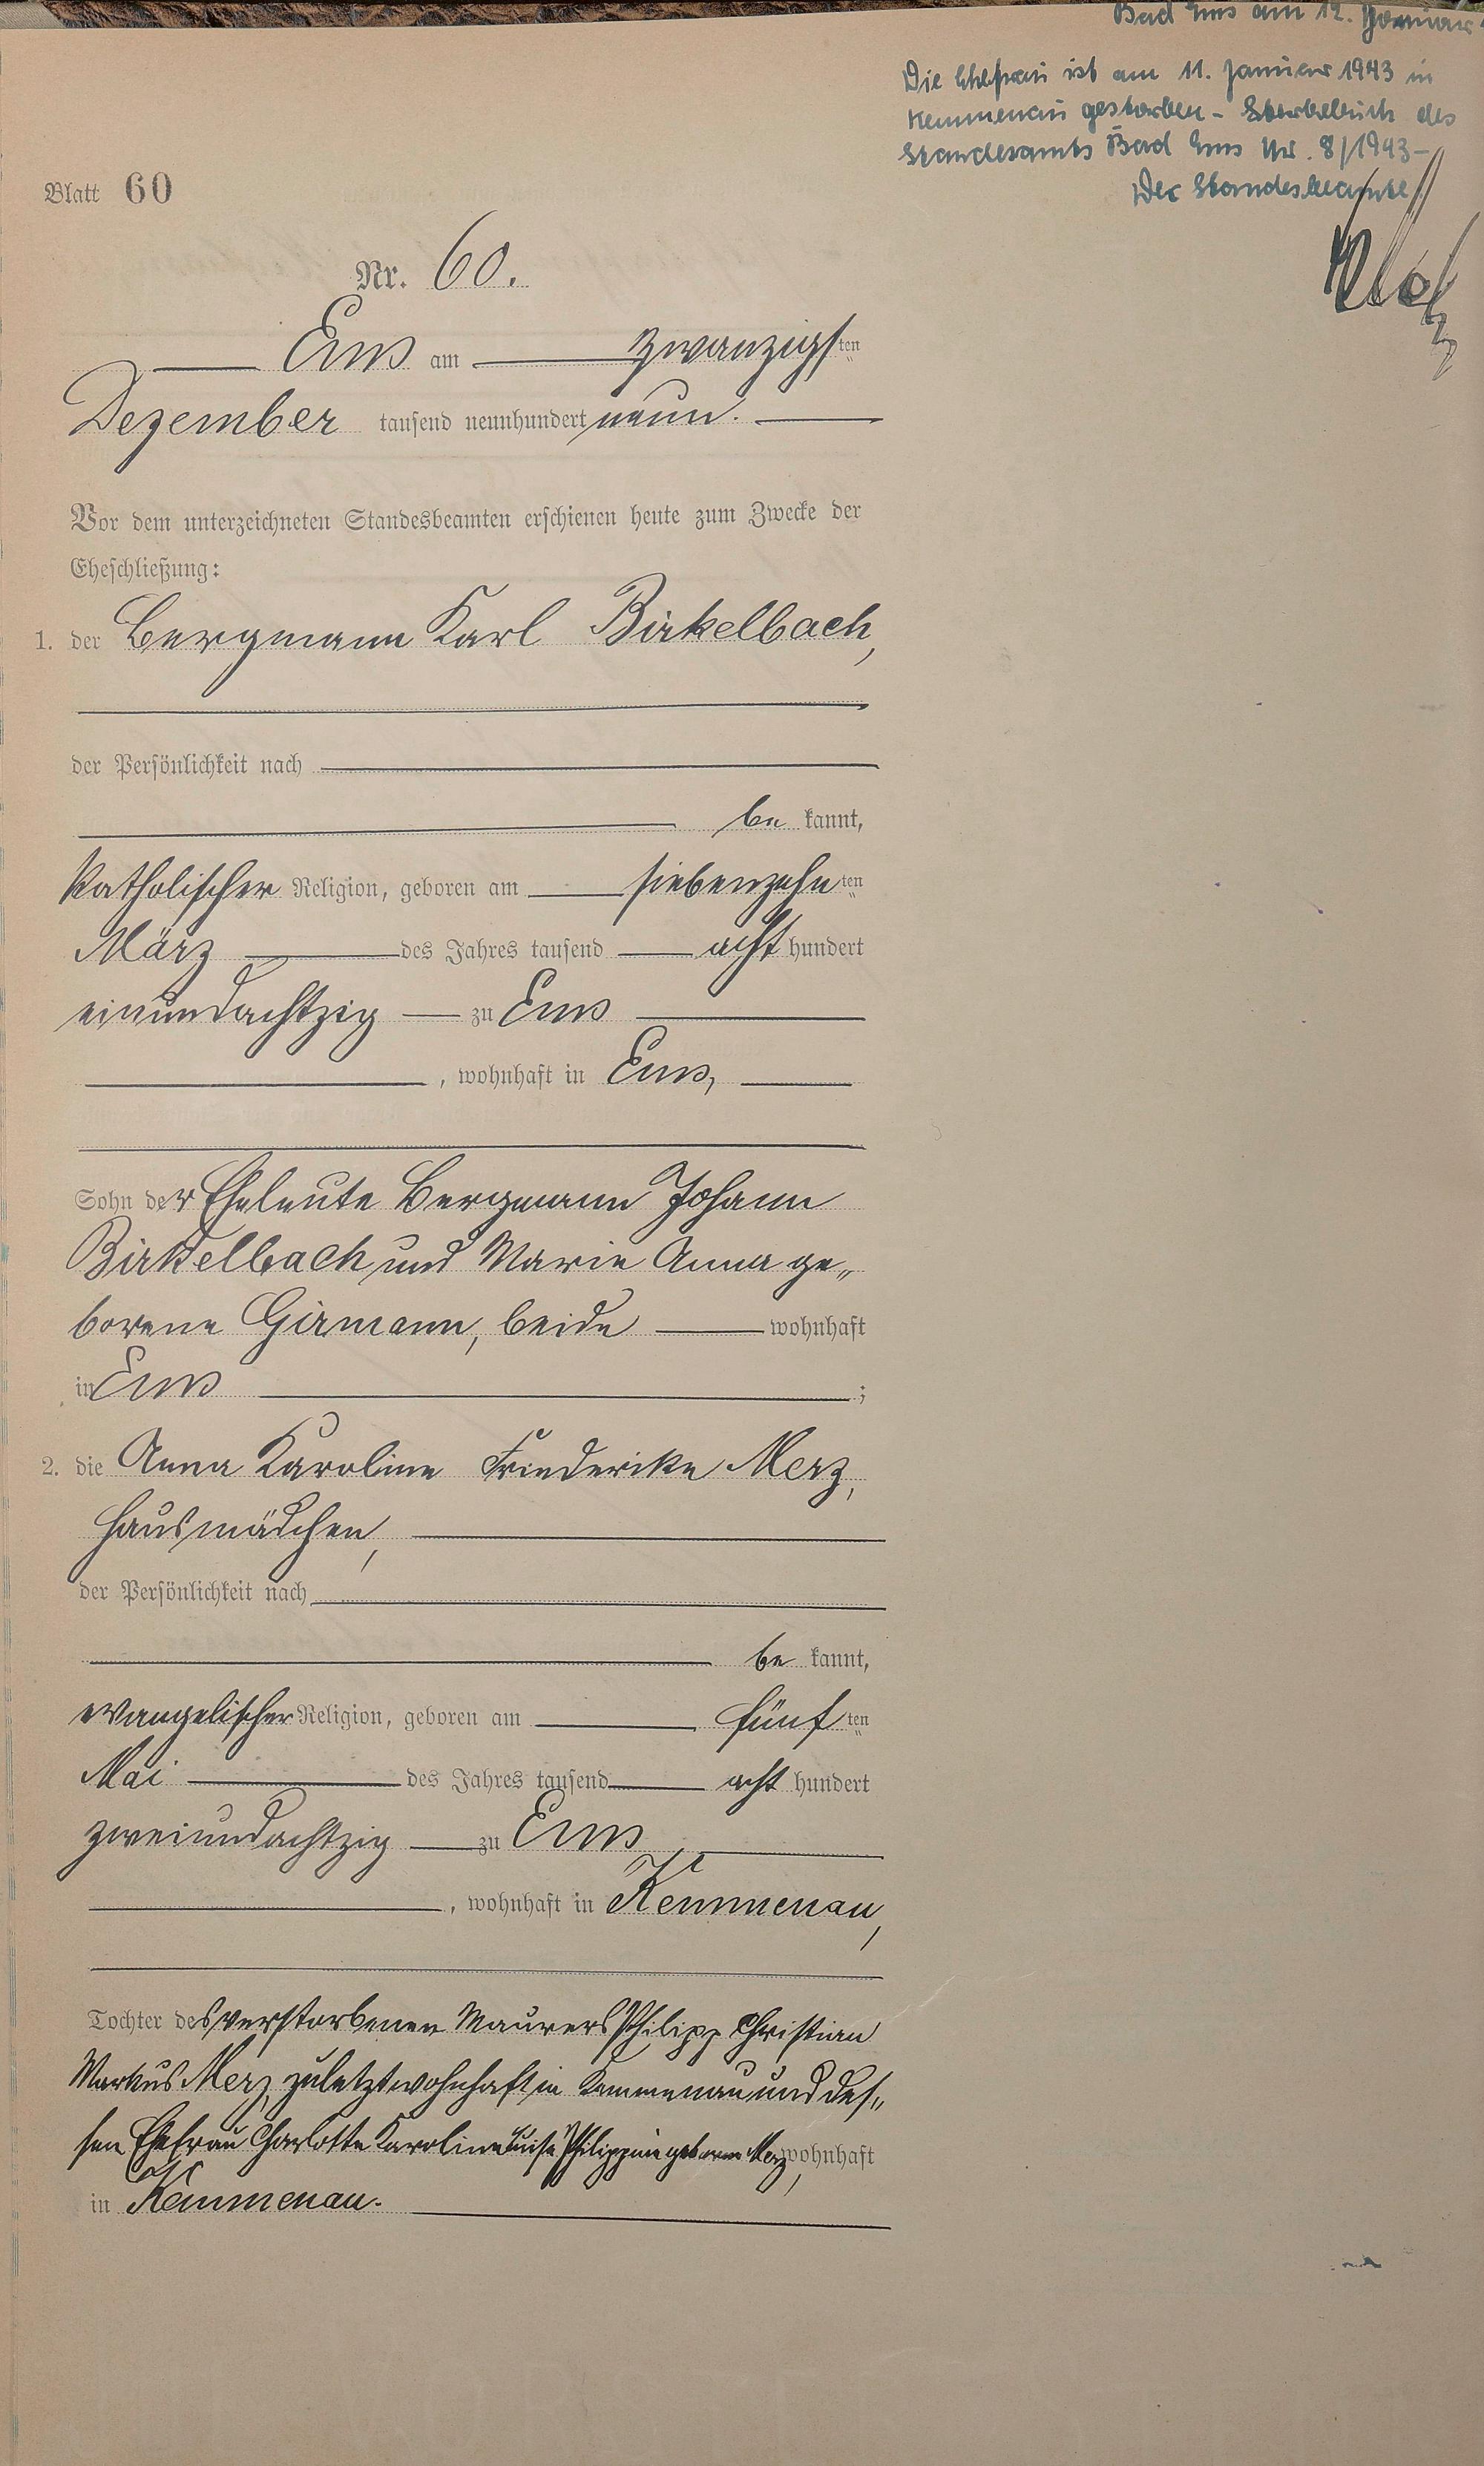 Bad Ems am 12. Januar
Die Ehefrau ist am 11. Januar 1943 in
Kemmenau gestorben - Sterbebuch des
Standesamts Bad Ems Nr. 8/1943 -
Der Standesbeamte
Blatt 60
Nr. 60.
Ems am zwanzigsten
Dezember tausend neunhundert neun.
Vor dem unterzeichneten Standesbeamten erschienen heute zum Zwecke der
Eheschließung:
1. der Bergmann Karl Birkelbach,
der Persönlichkeit nach
be kannt,
katholischer Religion, geboren am siebenzehnten
März des Jahres tausend acht hundert
einundachtzig zu Ems
, wohnhaft in Ems,
Sohn der Eheleute Bergmann Johann
Birkelbach und Marie Anna ge„
borene Girmann, beide wohnhaft
in Ems ;
2. die Anna Karoline Friederike Merz,
Hausmädchen,
der Persönlichkeit nach
be kannt,
evangelischer Religion, geboren am fünften
Mai des Jahres tausend acht hundert
zweiundachtzig zu Ems
, wohnhaft in Kemmenau,
Tochter des verstorbenen Maurers Philipp Christian
Markus Merz, zuletzt wohnhaft in Kemmenau und des„
sen Ehefrau Charlotte Karoline Luise Philippine geborene Merz, wohnhaft
in Kemmenau.